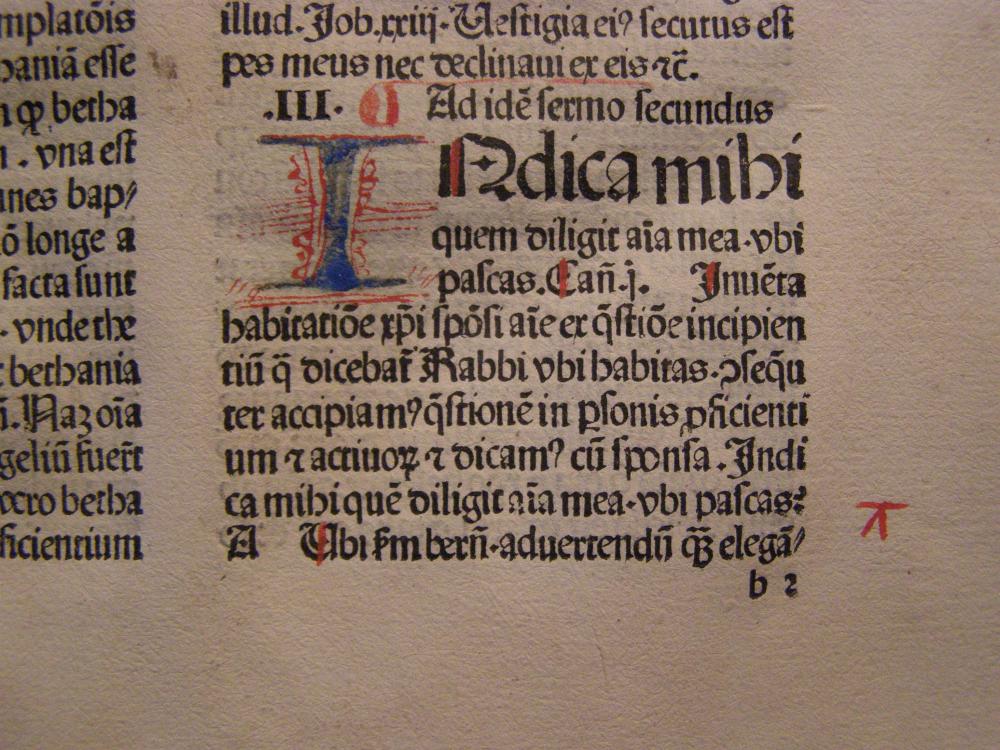 mplatōis
baniā esse
n ꝙ betha
. vna est
nes bap/
ō longe a
facta sunt
. vnde the
bethania
. Naz oīa
geliū fuer̄t
cro betha
ficientium
illud. Job.xxiij. Uestigia eiꝰ secutus est
pes meus nec declinaui ex eis ⁊c̄.
.III. Ad idē sermo secundus
INdica mihi
quem diligit aīa mea. vbi
pascas. Cañ.j. Inuēta
habitatiōe xp̄i spōsi aīe ex q̄stiōe incipien
tiū q̄ dicebat̄ Rabbi vbi habitas. ↄsequ
ter accipiamꝰ q̄stionē in ꝑsonis ꝓficienti
um ⁊ actiuoꝝ ⁊ dicamꝰ cū sponsa. Indi
ca mihi quē diligit aīa mea. vbi pascas?
A Ubi ẜm berñ. aduertendū ꝙ elegā/
b 2